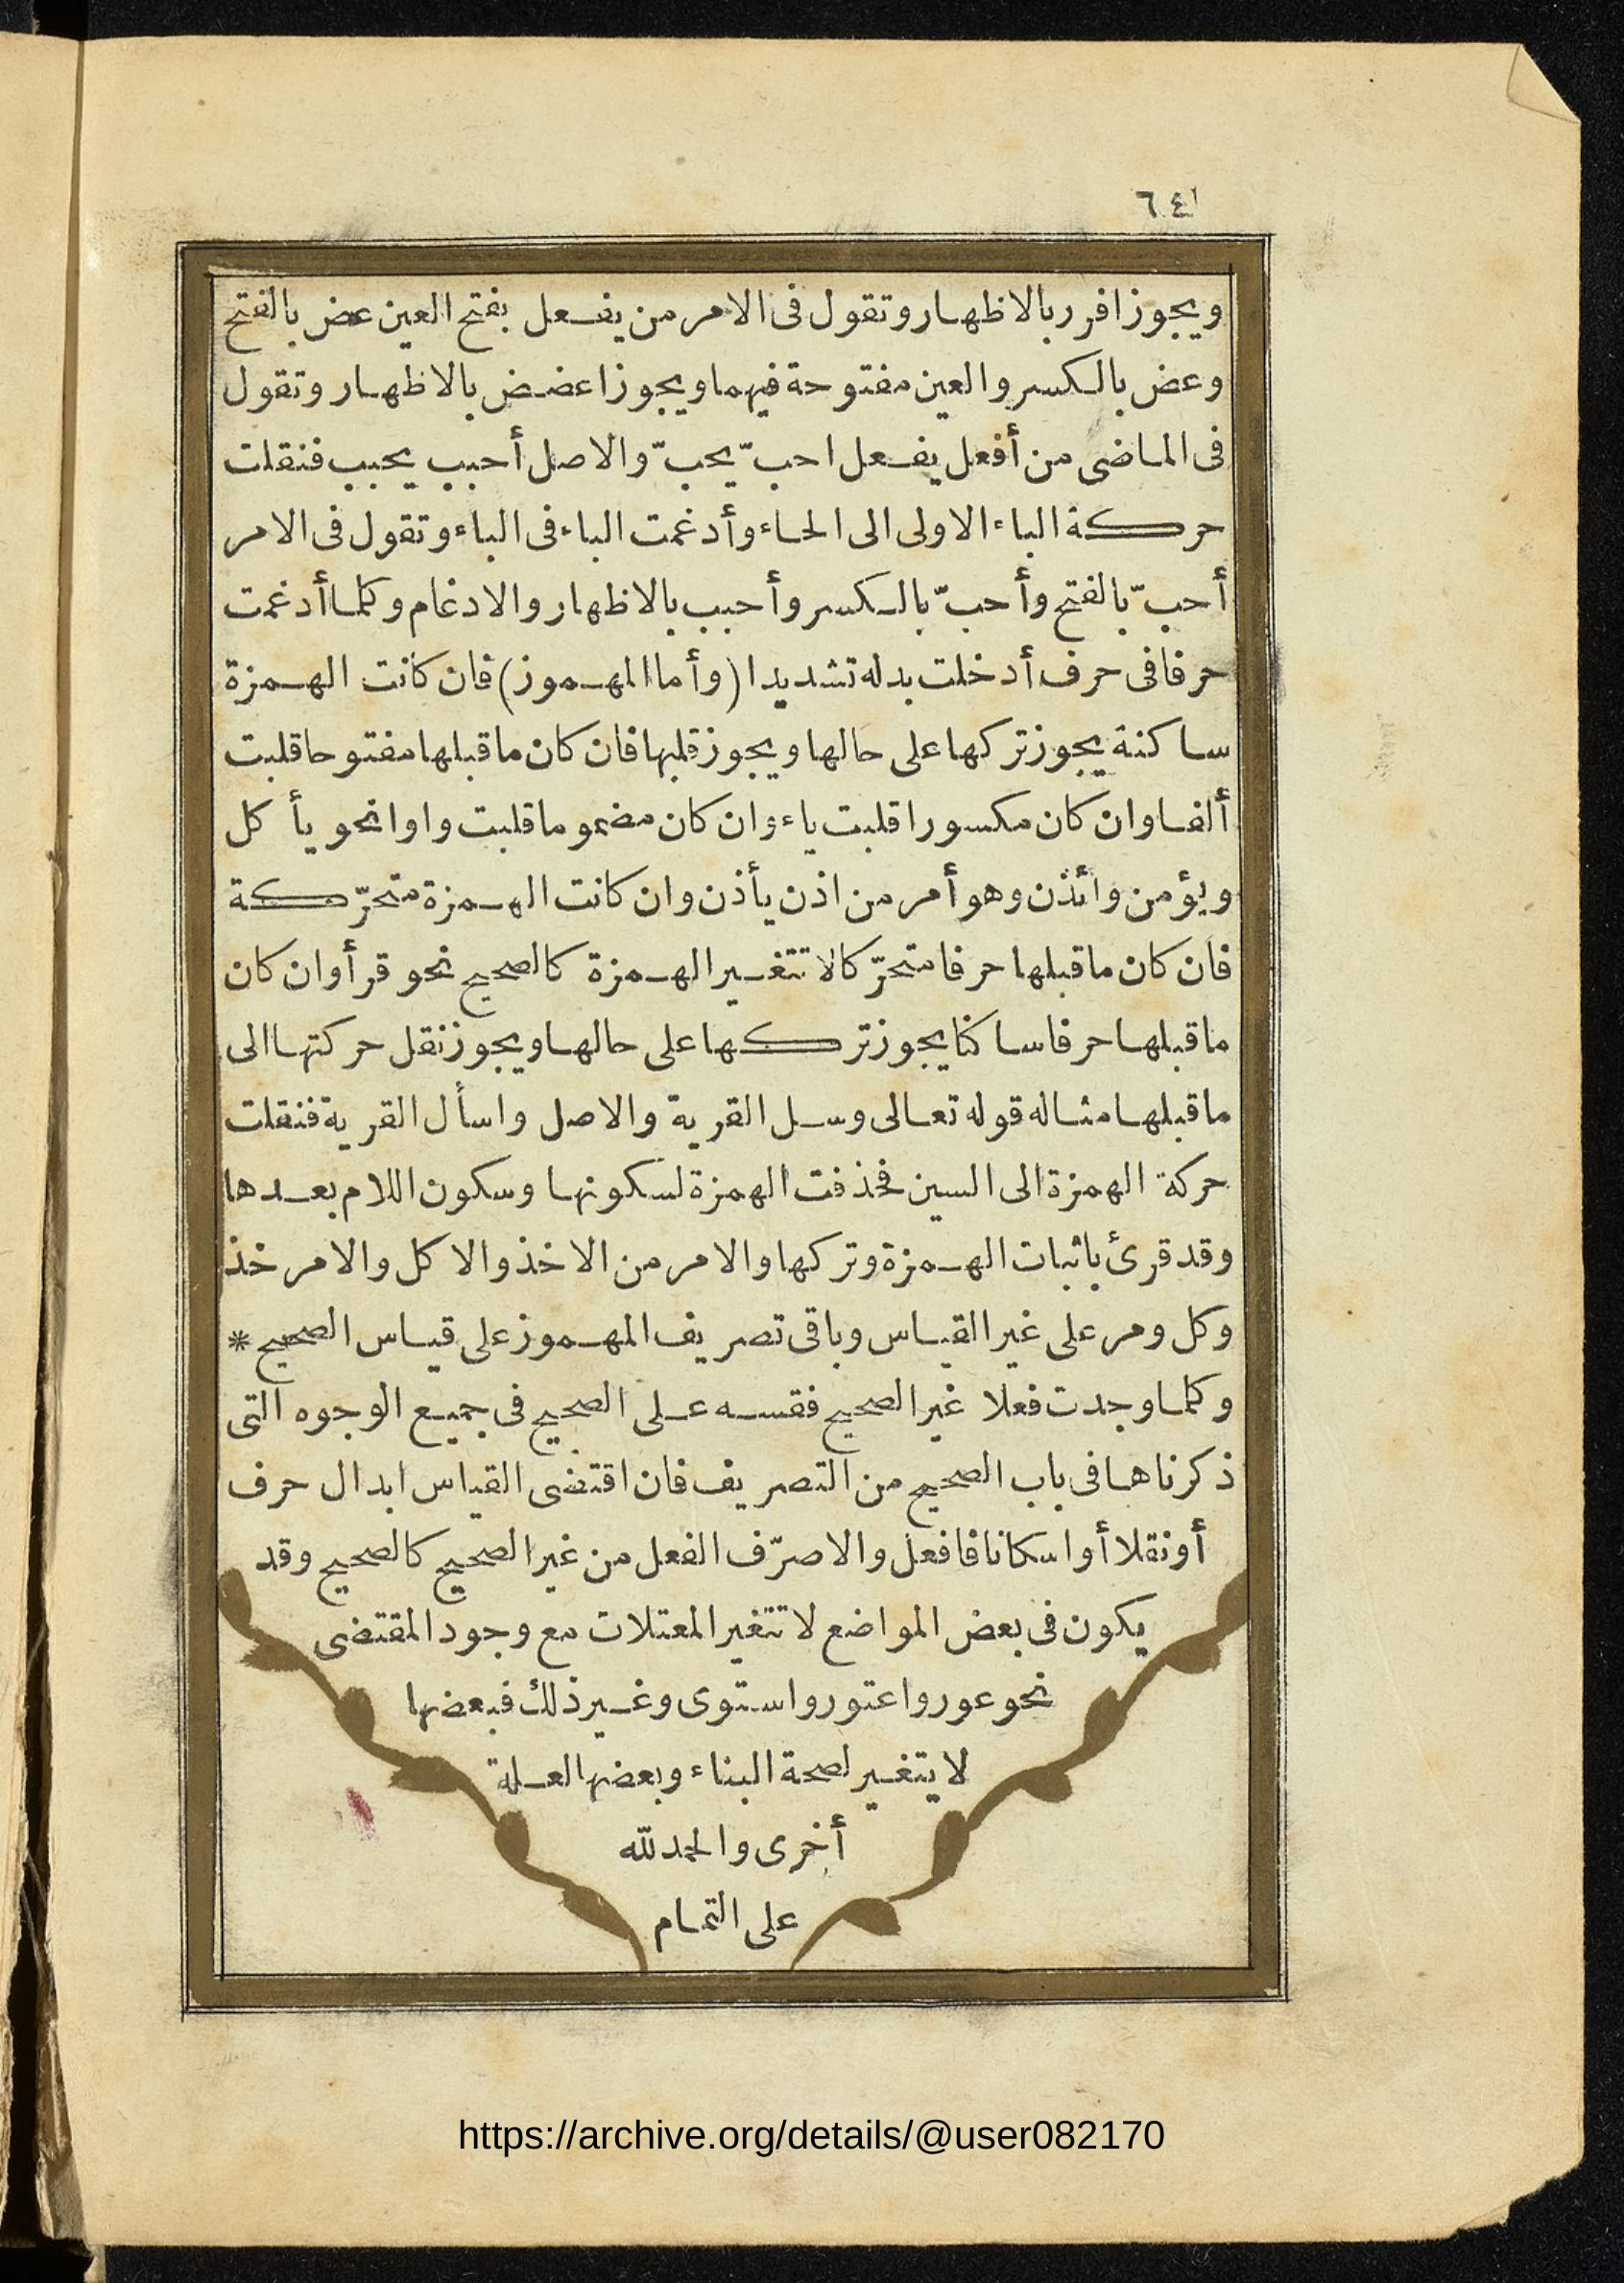 ٦٤١
ويجوز افرر بالاظهار وتقول فى الامر من يفعل بفتح العين عض بالفتح
وعض بالكسر والعين مفتوحة فيهما ويجوز اعضض بالاظهار وتقول
فى الماضى من أفعل يفعل احبّ يحبّ والاصل أحبب يحبب فنقلت
حركة الباء الاولى الى الحاء وأدغمت الباء فى الباء وتقول فى الامر
أحبّ بالفتح وأحبّ بالكسر وأحبب بالاظهار والادغام وكلما أدغمت
حرفا فى حرف أدخلت بدله تشديدا (وأما المهموز) فان كانت الهمزة
ساكنة يجوز تركها على حالها ويجوز قلبها فان كان ما قبلها مفتوحا قلبت
ألفا وان كان مكسورا قلبت ياء وان كان مضموما قلبت واوا نحو يأكل
ويؤمن وائذن وهو أمر من اذن يأذن وان كانت الهمزة متحرّكة
فان كان ما قبلها حرفا متحرّكا لا تتغير الهمزة كالصحيح نحو قرأ وان كان
ما قبلها حرفا ساكنا يجوز تركها على حالها ويجوز نقل حركتها الى
ما قبلها مثاله قوله تعالى وسل القرية والاصل واسأل القرية فنقلت
حركة الهمزة الى السين فحذفت الهمزة لسكونها وسكون اللام بعدها
وقد قرئ باثبات الهمزة وتركها والامر من الاخذ والاكل والامر خذ
وكل ومر على غير القياس وباقى تصريف المهموز على قياس الصحيح *
وكلما وجدت فعلا غير الصحيح فقسه على الصحيح فى جميع الوجوه التى
ذكرناها فى باب الصحيح من التصريف فان اقتضى القياس ابدال حرف
أو نقلا أو اسكانا فافعل والا صرّف الفعل من غير الصحيح كالصحيح وقد
يكون فى بعض المواضع لا تتغير المعتلات مع وجود المقتضى
نحو عور واعتور واستوى وغير ذلك فبعضها
لا يتغير لصحة البناء وبعضها لعلة
أخرى والحمد لله
على التمام
https://archive.org/details/@user082170